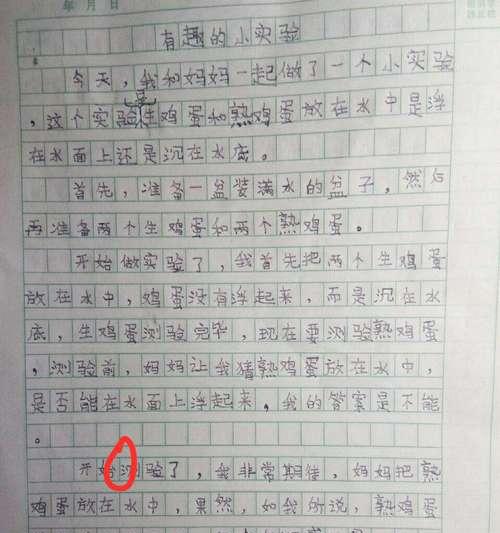 年 月 日
有趣的小实验
今天，我和妈妈一起做了一个小实验
是
，这个实验生鸡蛋和熟鸡蛋放在水中是浮
在水面上还是沉在水底。
首先，准备一盆装满水的盆子，然后
再准备两个生鸡蛋和两个熟鸡蛋。
开始做实验了，我首先把两个生鸡蛋
放在水中，鸡蛋没有浮起来，而是沉在水
底，生鸡蛋测验完毕，现在要测验熟鸡蛋
，测验前，妈妈让我猜熟鸡蛋放在水中，
是否能在水面上浮起来，我的答案是不能
。
开始测验了，我非常期待，妈妈把熟
鸡蛋放在水中，果然，如我所说，熟鸡蛋